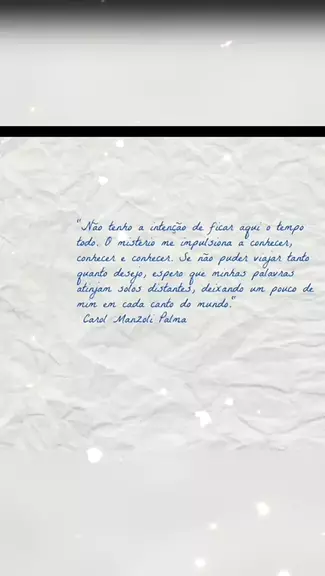 "Não tenho a intenção de ficar aqui o tempo
todo. O mistério me impulsiona a conhecer,
conhecer e conhecer. Se não puder viajar tanto
quanto desejo, espero que minhas palavras
atinjam solos distantes, deixando um pouco de
mim em cada canto do mundo."
Carol Manzoli Palma